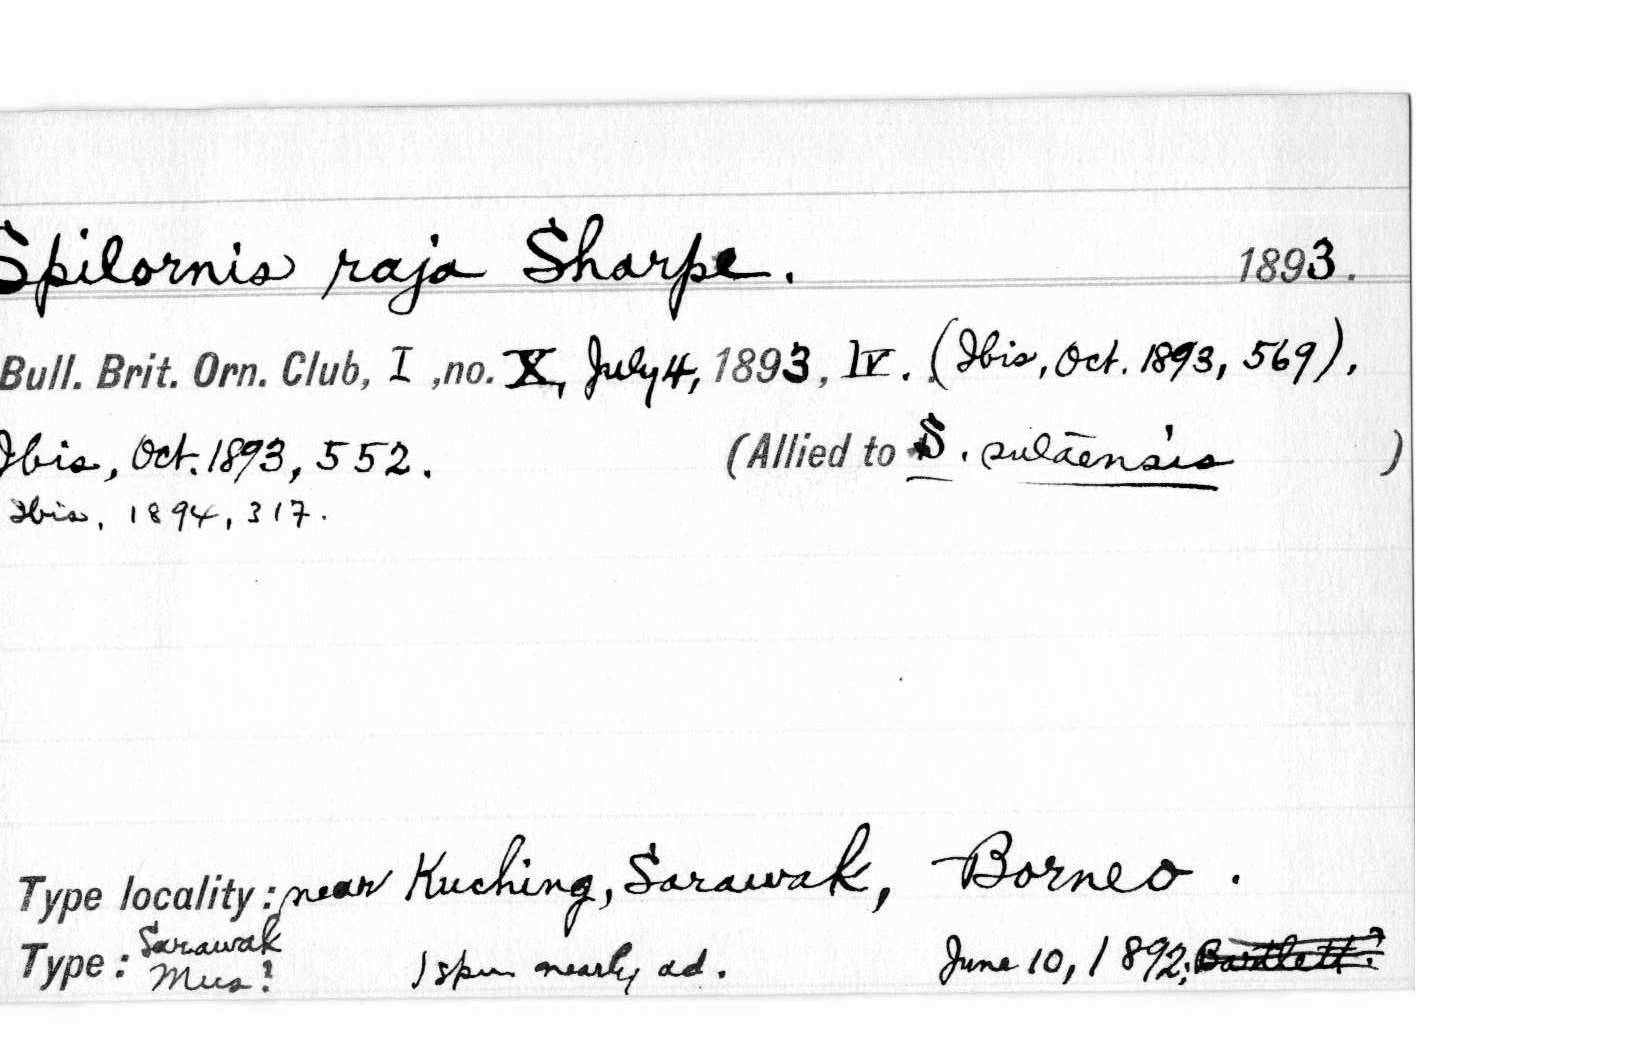 Spilornis raja Sharpe. 1893.
Bull. Brit. Orn. Club, I ,no. X, July 4, 1893, IV. (Ibis, Oct. 1893, 569).
Ibis, Oct. 1893, 552. (Allied to S. sulaensis )
Ibis, 1894, 317.
Type locality: near Kuching, Sarawak, Borneo.
Type: Sarawak Mus? 1 spm nearly ad. June 10, 1892; Bartlett?